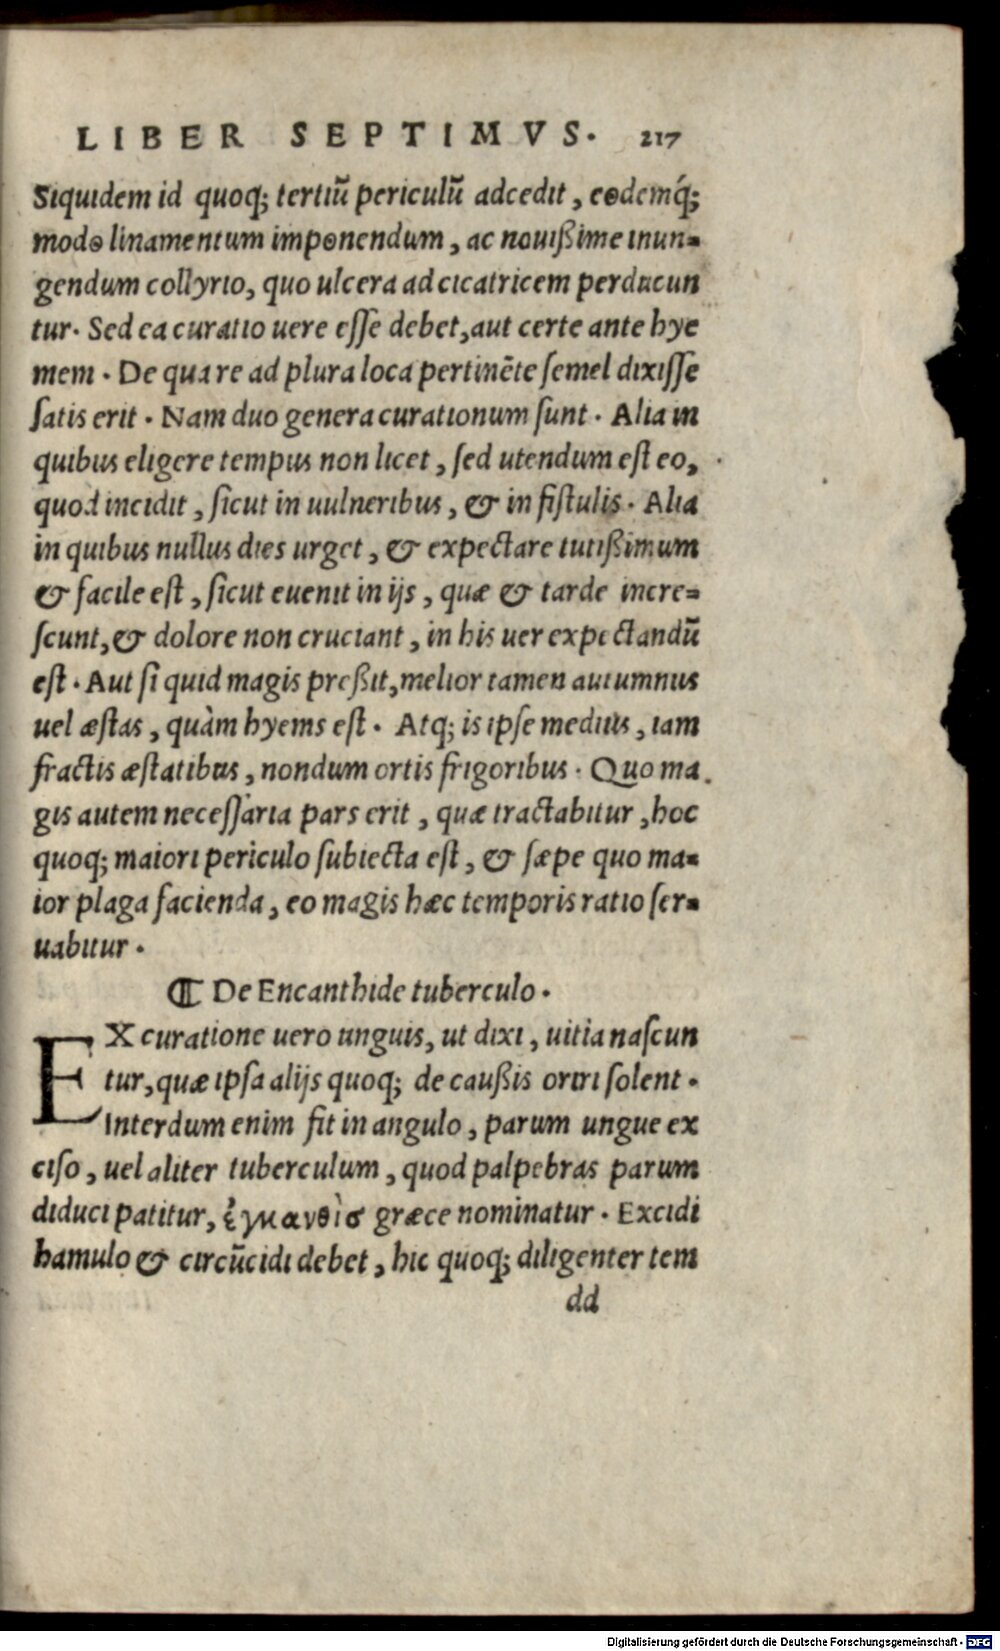 LIBER SEPTIMVS. 217
Siquidem id quoq; tertiũ periculũ adcedit, eodemq́;
modo linamentum imponendum, ac nouißime inun-
gendum collyrio, quo ulcera ad cicatricem perducun
tur. Sed ea curatio uere esse debet, aut certe ante hye
mem. De qua re ad plura loca pertinẽte semel dixisse
satis erit. Nam duo genera curationum sunt. Alia in
quibus eligere tempus non licet, sed utendum est eo,
quod incidit, sicut in uulneribus, & in fistulis. Alia
in quibus nullus dies urget, & expectare tutißimum
& facile est, sicut euenit in ijs, quæ & tarde incre-
scunt, & dolore non cruciant, in his uer expectandũ
est. Aut si quid magis preßit, melior tamen autumnus
uel æstas, quàm hyems est. Atq; is ipse medius, iam
fractis æstatibus, nondum ortis frigoribus. Quo ma
gis autem necessaria pars erit, quæ tractabitur, hoc
quoq; maiori periculo subiecta est, & sæpe quo ma-
ior plaga facienda, eo magis hæc temporis ratio ser-
uabitur.
¶ De Encanthide tuberculo.
EX curatione uero unguis, ut dixi, uitia nascun
tur, quæ ipsa alijs quoq; de caußis oriri solent.
Interdum enim fit in angulo, parum ungue ex
ciso, uel aliter tuberculum, quod palpebras parum
diduci patitur, ἐγκανθὶσ græce nominatur. Excidi
hamulo & circũcidi debet, hic quoq; diligenter tem
dd
Digitalisierung gefördert durch die Deutsche Forschungsgemeinschaft - DFG